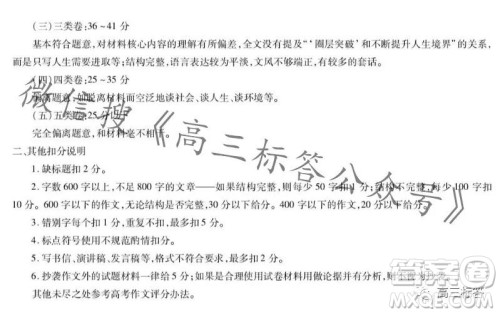 (三)三类卷:36~41分
基本符合题意,对材料核心内容的理解有所偏差,全文没有提及“‘圈层突破’和不断提升人生境界”的关系,
而是只写人生需要进取等;结构完整,语言表达较为平淡,文风不够端正,有较多的套话。
(四)四类卷:25~35分
偏离题意,如脱离材料而空泛地谈社会、谈人生、谈环境等。
(五)五类卷:
完全偏离题意,和材料毫不相干。
二、其他扣分说明
1.缺标题扣2分。
2.字数600字以上,不足800字的文章——如果结构完整,则每少50字扣1分;结构不完整,每少100字扣
10分。600字以下,无论结构是否完整,30分以下给分。400字以下,20分以下给分。
3.错别字每个扣1分,重复不扣,最多扣5分。
4.标点符号使用不规范的,酌情扣分。
5.写书信、演讲稿、发言稿等,格式不规范,扣2分。
6.抄袭作文外的试题材料一律给5分;如果是合理使用试卷材料用做论据并有分析,则
其他未尽之处参考高考作文评分办法。
微信搜《高三标答公众号》
高三标答